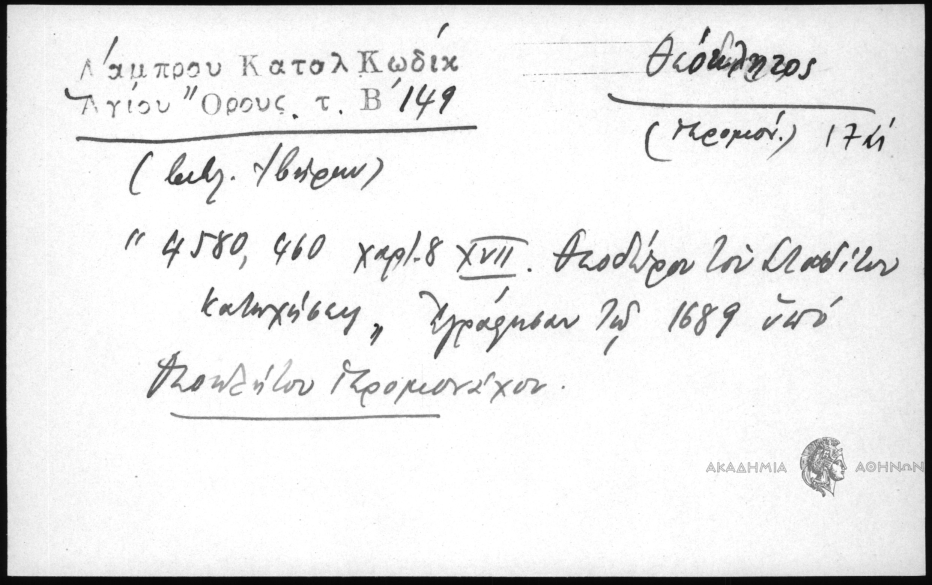 Λάμπρου Καταλ Κωδίκ
Ἁγίου Ὄρους. τ. Β΄ 149
Θεόκλητος
(ἱερομόν.) 17
(βιβλ. Ἰβήρων)
" 4580, 460 χαρτ. 8 XVII. Θεοδώρου τοῦ Στουδίτου
Κατηχήσεις „ Ἐγράφησαν τῷ 1689 ὑπὸ
Θεοκλήτου ἱερομονάχου.
ΑΚΑΔΗΜΙΑ ΑΘΗΝΩΝ